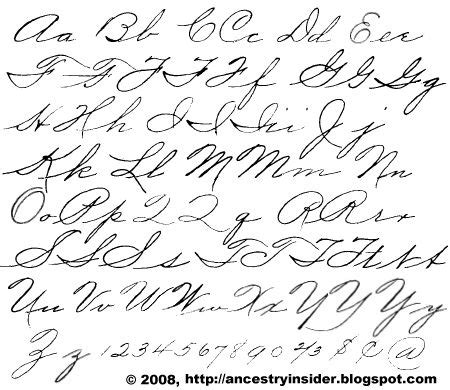 Aa Bb CCc Dd Eee
FFFFFf GGGg
HHh IIIii Jj
Kk Ll MMm Nn
Oo Pp 22q RRrr
SSSs TTTttt
Uu Vv WWw Xx YYYy
Zz 1234567890 2/3 $ ¢ @
© 2008, http://ancestryinsider.blogspot.com